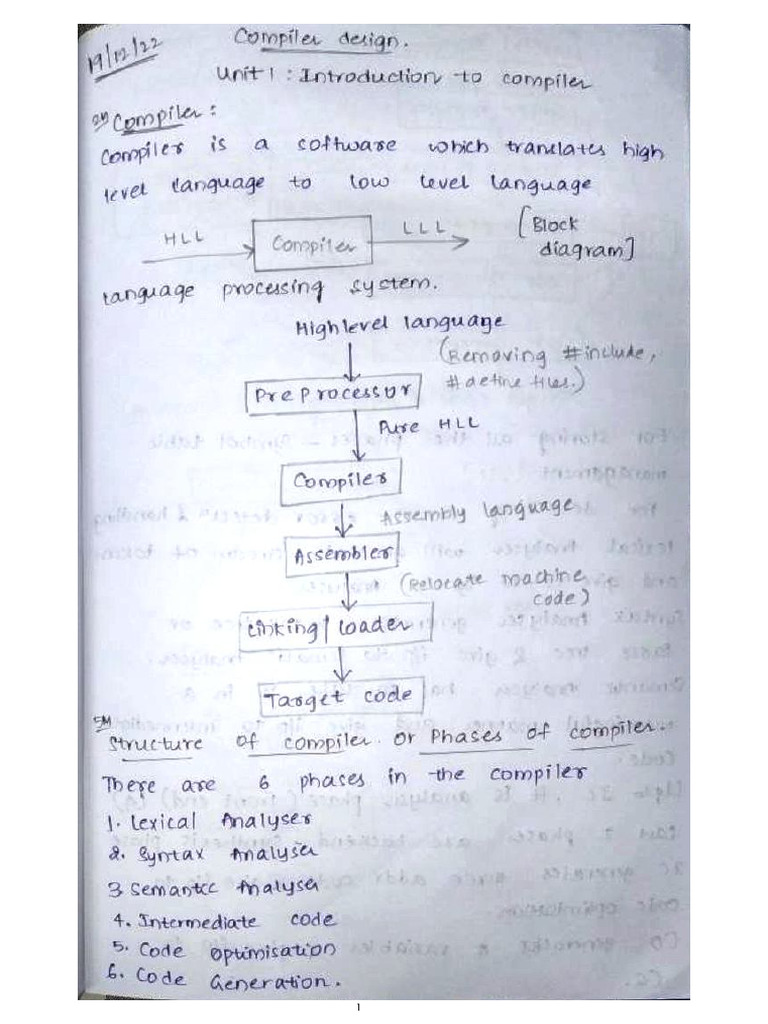 19/12/22
Compiler design.
Unit 1 : Introduction to compiler
2M Compiler :
Compiler is a software which translates high
level language to low level language
HLL
Compiler
LLL
[Block
diagram]
Language processing system.
High level language
(Removing #include,
#define files.)
Preprocessor
Pure HLL
Compiler
Assembly language
Assembler
(Relocate machine
code)
Linking / Loader
Target code
5M
Structure of compiler or Phases of compiler.
There are 6 phases in the compiler
1. Lexical Analyser
2. Syntax Analyser
3. Semantic Analyser
4. Intermediate code
5. Code Optimisation
6. Code Generation.
1